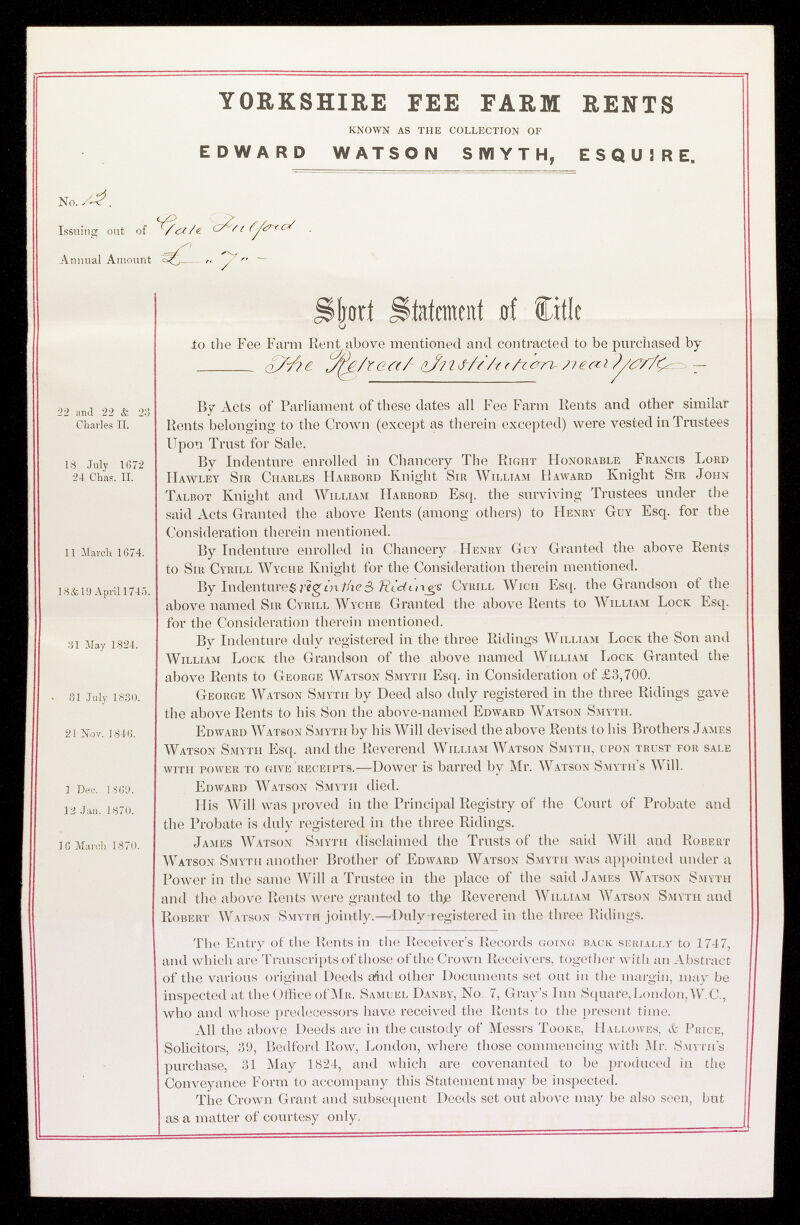 YORKSHIRE FEE FARM RENTS
KNOWN AS THE COLLECTION OF
EDWARD WATSON SMYTH, ESQUIRE.
No. 12.
Issuing out of Gate Fulford.
Annual Amount £ " 7 " —
Short Statement of Title
to the Fee Farm Rent above mentioned and contracted to be purchased by
The Retreat Institution near York —
22 and 22 & 23 By Acts of Parliament of these dates all Fee Farm Rents and other similar
Charles II. Rents belonging to the Crown (except as therein excepted) were vested in Trustees
Upon Trust for Sale.
18 July 1672 By Indenture enrolled in Chancery The Right Honorable Francis Lord
24 Chas. II. Hawley Sir Charles Harbord Knight Sir William Haward Knight Sir John
Talbot Knight and William Harbord Esq. the surviving Trustees under the
said Acts Granted the above Rents (among others) to Henry Guy Esq. for the
Consideration therein mentioned.
11 March 1674. By Indenture enrolled in Chancery Henry Guy Granted the above Rents
to Sir Cyrill Wyche Knight for the Consideration therein mentioned.
18&19 April 1745. By Indentures reg in the 3 Ridings Cyrill Wich Esq. the Grandson of the
above named Sir Cyrill Wyche Granted the above Rents to William Lock Esq.
for the Consideration therein mentioned.
31 May 1824. By Indenture duly registered in the three Ridings William Lock the Son and
William Lock the Grandson of the above named William Lock Granted the
above Rents to George Watson Smyth Esq. in Consideration of £3,700.
31 July 1830. George Watson Smyth by Deed also duly registered in the three Ridings gave
the above Rents to his Son the above-named Edward Watson Smyth.
21 Nov. 1846. Edward Watson Smyth by his Will devised the above Rents to his Brothers James
Watson Smyth Esq. and the Reverend William Watson Smyth, upon trust for sale
with power to give receipts.—Dower is barred by Mr. Watson Smyth's Will.
1 Dec. 1869. Edward Watson Smyth died.
12 Jan. 1870. His Will was proved in the Principal Registry of the Court of Probate and
the Probate is duly registered in the three Ridings.
16 March 1870. James Watson Smyth disclaimed the Trusts of the said Will and Robert
Watson Smyth another Brother of Edward Watson Smyth was appointed under a
Power in the same Will a Trustee in the place of the said James Watson Smyth
and the above Rents were granted to the Reverend William Watson Smyth and
Robert Watson Smyth jointly.—Duly registered in the three Ridings.
The Entry of the Rents in the Receiver's Records going back serially to 1747,
and which are Transcripts of those of the Crown Receivers, together with an Abstract
of the various original Deeds and other Documents set out in the margin, may be
inspected at the Office of Mr. Samuel Danby, No. 7, Gray's Inn Square, London, W.C.,
who and whose predecessors have received the Rents to the present time.
All the above Deeds are in the custody of Messrs Tooke, Hallowes, & Price,
Solicitors, 39, Bedford Row, London, where those commencing with Mr. Smyth's
purchase, 31 May 1824, and which are covenanted to be produced in the
Conveyance Form to accompany this Statement may be inspected.
The Crown Grant and subsequent Deeds set out above may be also seen, but
as a matter of courtesy only.